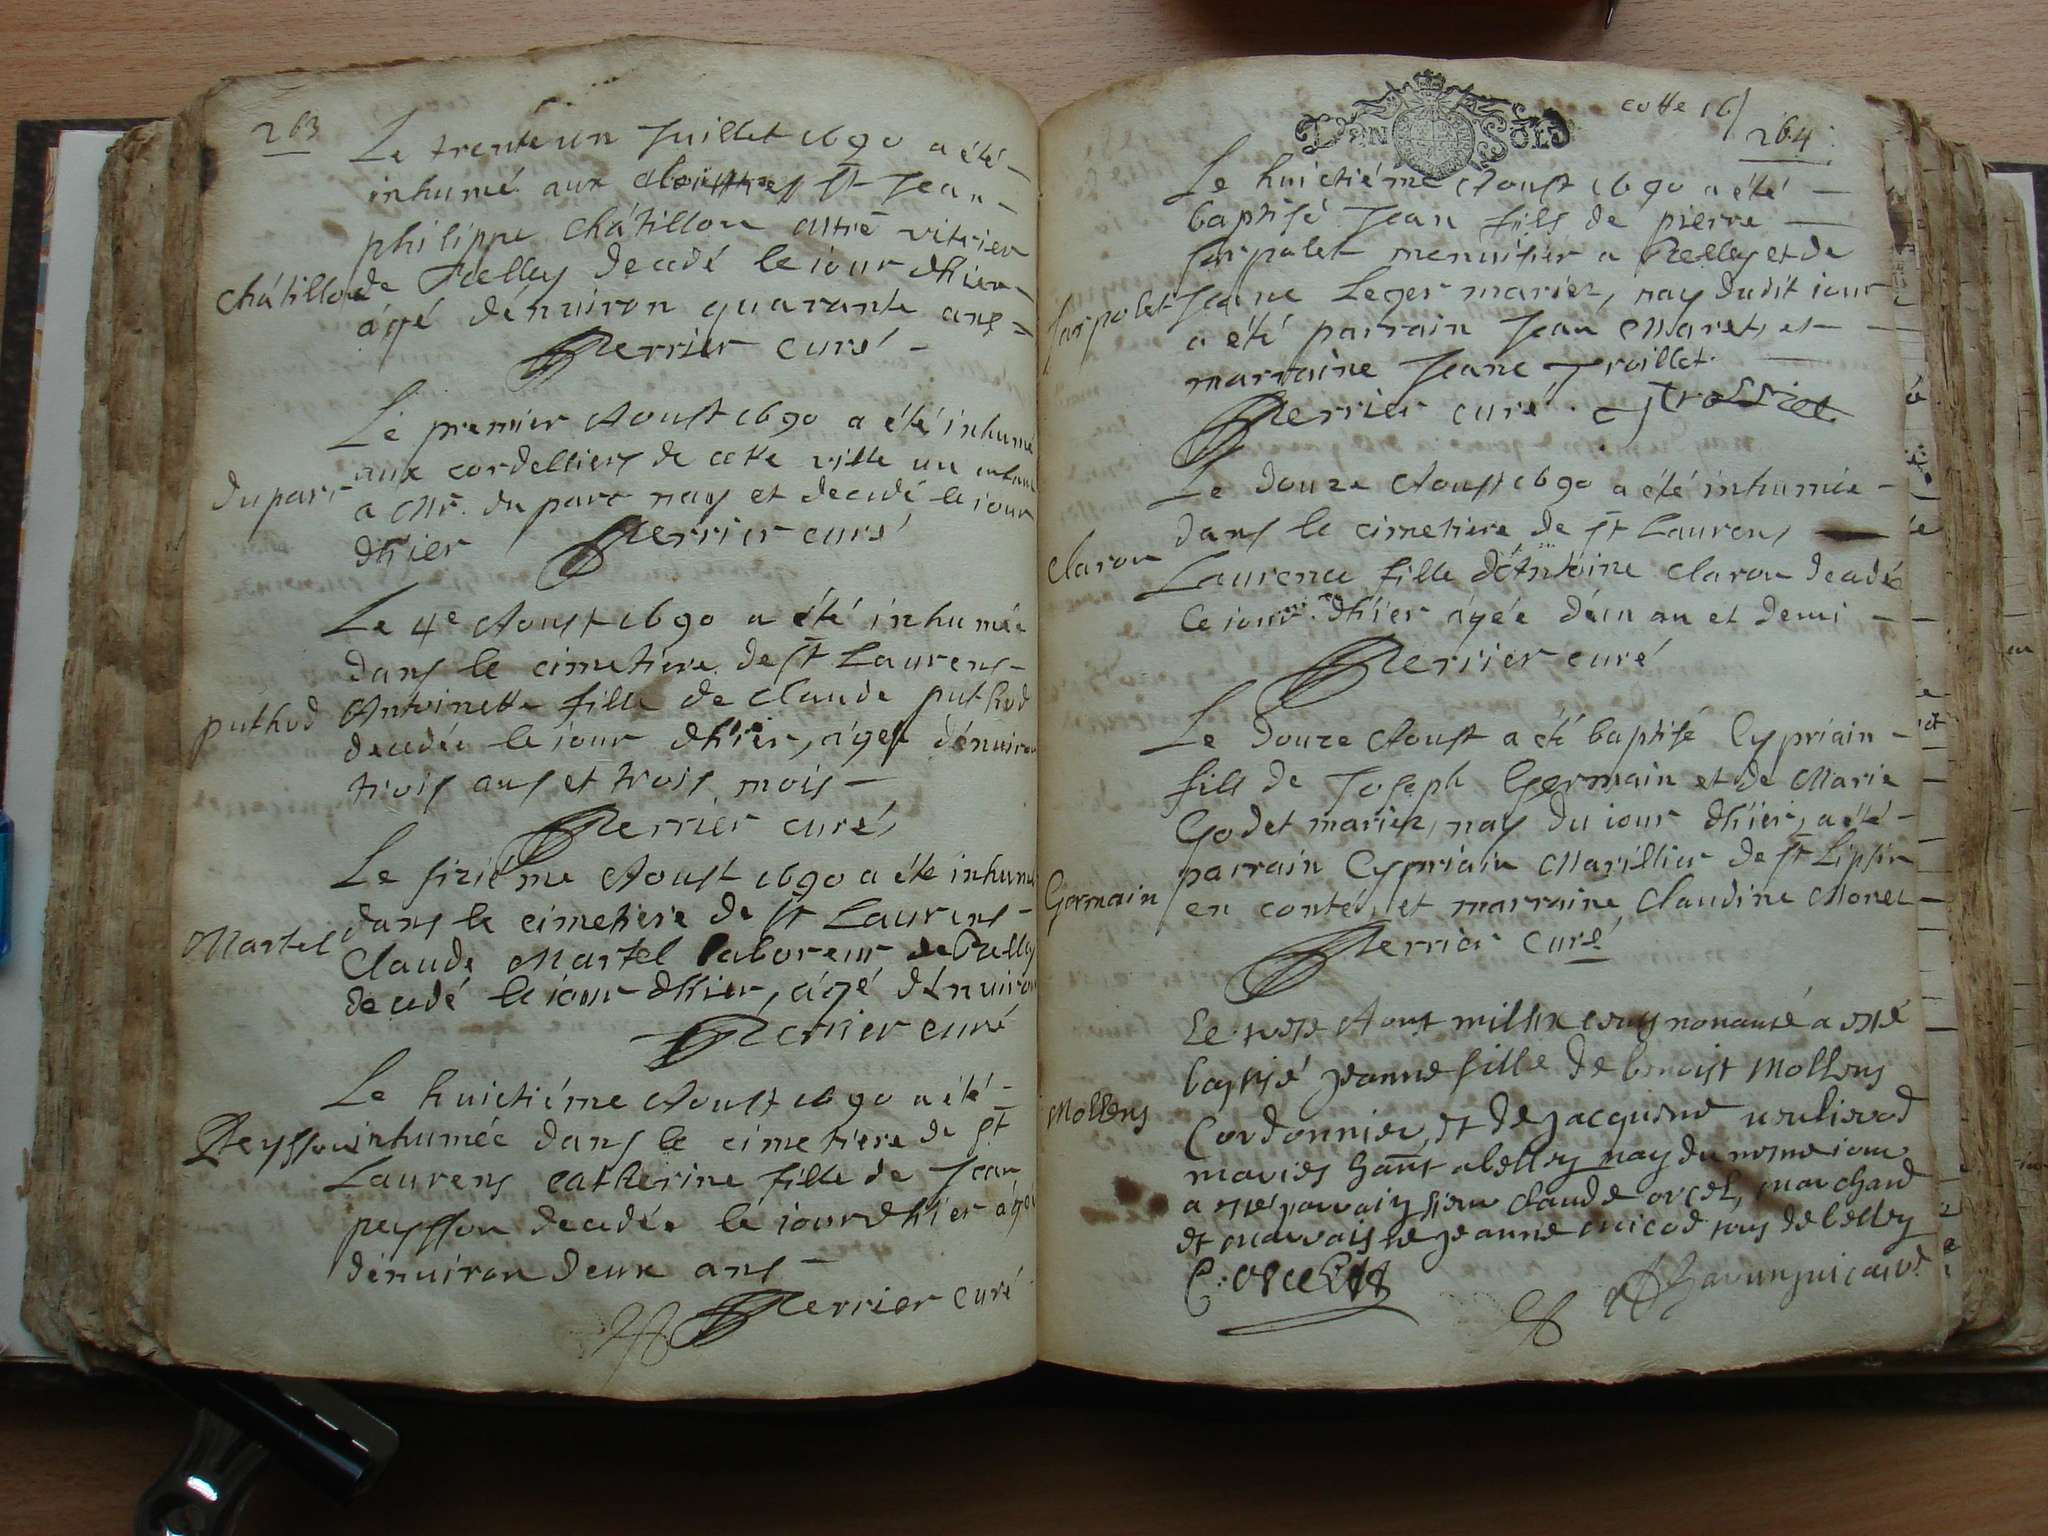 263
Le trente un Juillet 1690 a été
inhumé aux cloistres St Jean
philippe Châtillon vitrier
Châtillon
de Belley decedé le iour d'hier
âgé d'enuiron quarante ans
Perrier curé
Le premier Aoust 1690 a été inhumé
aux cordelliers de cette ville un enfant
du parc
a Mr. du parc nay et decedé le iour
d'hier Perrier curé
Le 4e Aoust 1690 a été inhumée
dans le cimetiere de St Laurens
puthod
Antoinette fille de Claude puthod
decedée le iour d'hier, âgée d'enuiron
trois ans et trois mois
Perrier curé
Le siziéme Aoust 1690 a été inhumé
dans le cimetiere de St Laurens
Martel
Claude Martel laboreur de Belley
decedé le iour d'hier, âgé d'enuiron
Perrier curé
Le huictiéme Aoust 1690 a été
Peysson
inhumée dans le cimetiere de St
Laurens catherine fille de Jean
peysson decedée le iour d'hier âgée
d'enuiron deux ans
Perrier curé
D'UN SOLD
cotte 16
264
Le huictiéme Aoust 1690 a été
baptisé Jean fils de pierre
Sarpolet menuisier a Belley et de
Sarpolet
Jeane Leger mariez, nay dudit iour
a été parrain Jean Maret, et
marraine Jeane Troillet
Perrier curé
Le douze Aoust 1690 a été inhumée
dans le cimetiere de St Laurens
Claron
Laurence fille d'Antoine Claron decedée
le iour d'hier âgée d'un an et demi
Perrier curé
Le douze Aoust a été baptisé Cypriain
fils de Joseph Germain et de Marie
Godet mariez, nay du iour d'hier, a été
parrain Cypriain Marillier de St
Germain
en conté, et marraine Claudine Monet
Perrier curé
Le Aoust mil six cens nonante a esté
baptisé jeanne fille de benoist Mollens
Mollens
Cordonnier, et de jacquème
mariés a belley nay du mesme iour
a esté parrain sieur Claude orcet, marchand
et marraisne jeanne nicod tous de belley
C: orcet